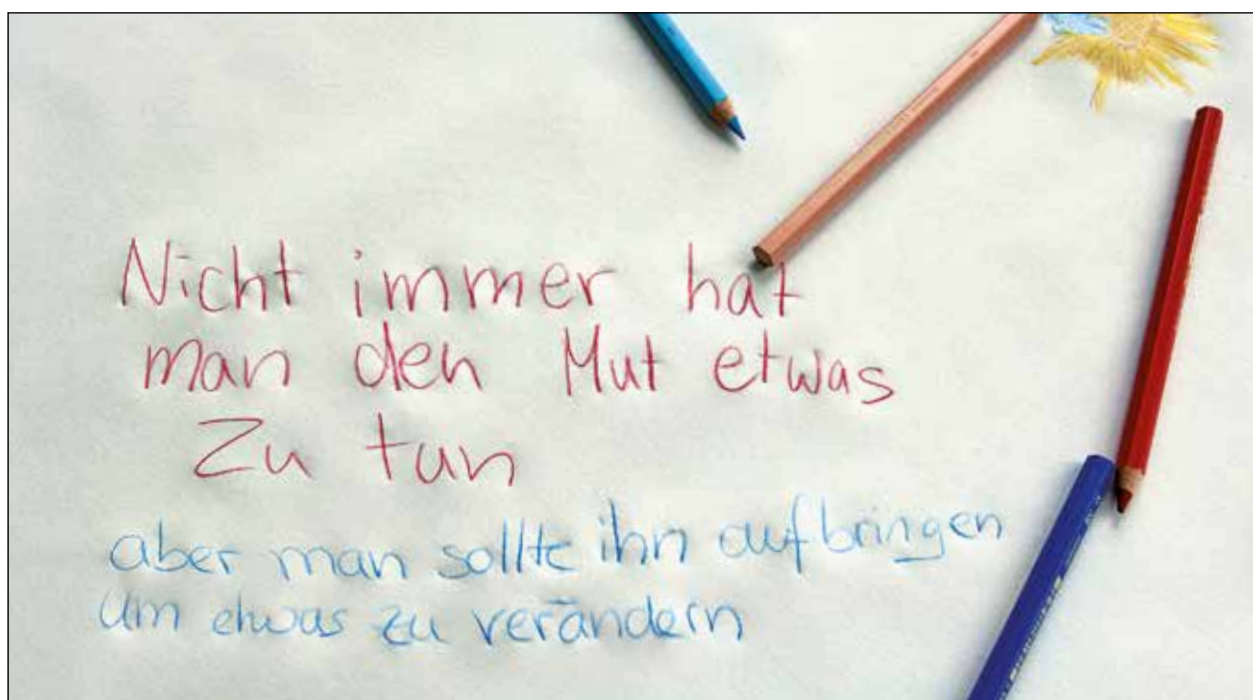 Nicht immer hat
man den Mut etwas
Zu tun
aber man sollte ihn aufbringen
um etwas zu verändern